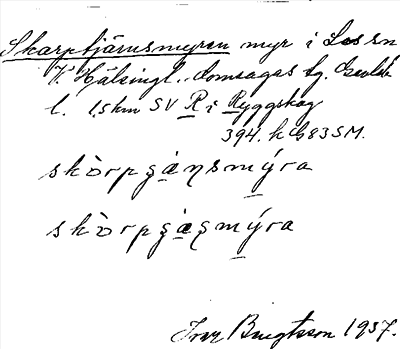 Skarptjärnsmyren myr i Los sn
V. Hälsingl. domsagas tg. Gävleb.
l. 1,5 km SV R i Ryggskog
394. h G 83 SM.
skòrpşa̱ṇsmýra
skòrpşa̱şmýra
Ivar Bengtsson 1937.